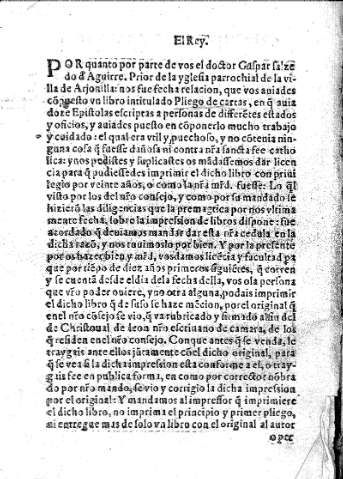 El Rey.
POR quanto por parte de vos el doctor Gaspar salze
do d̃ Aguirre. Prior de la yglesia parrochial de la vi
lla de Arjonilla: nos fue fecha relacion, que vos auiades
cõpuesto vn libro intitulado Pliego de cartas, en q̃ auia
doze Epistolas escriptas a personas de diferẽtes estados
y oficios, y auiades puesto en cõponerlo mucho trabajo
y cuidado: el qual era vtil y prouechoso, y no cõtenia nin
guna cosa q̃ fuesse dañosa ni contra nr̃a sancta fee catho
lica: y nos pedistes y suplicastes os mãdassemos dar licen
cia para q̃ pudiessedes imprimir el dicho libro con priui
legio por veinte años, o como la nr̃a mr̃d. fuesse. Lo q̃l
visto por los del nr̃o consejo, y como por su mandado se
hizierõ las diligencias que la prematica por nos vltima
mente fecha, sobre la impression de libros dispone: fue
acordado q̃ deuiamos mandar dar esta nr̃a cedula en la
dicha razõ, y nos tuuimoslo por bien. Y por la presente
por os hazer bien y mr̃d, vos damos licẽcia y facultad pa
que por tiẽpo de diez años primeros siguiẽtes, q̃ corren
y se cuentã desde el dia dela fecha della, vos o la persona
que vr̃o poder ouiere, y no otra alguna, podais imprimir
el dicho libro q̃ de suso se haze mẽcion, por el original q̃
en el nr̃o cõsejo se vio, q̃ va rubricado y firmado al fin del
de Christoual de leon nr̃o escriuano de camara, de los
q̃ residen en el nr̃o consejo. Con que antes q̃ se venda, le
traygais ante ellos jũtamente cõ el dicho original, para
q̃ se vea si la dicha impression esta conforme a el, o tray-
gais fee en publica forma, en como por corrector nõbra
do por nr̃o mando, se vio y corrigio la dicha impression
por el original: Y mandamos al impressor q̃ imprimiere
el dicho libro, no imprima el principio y primer pliego,
ni entregue mas de solo vn libro con el original al autor